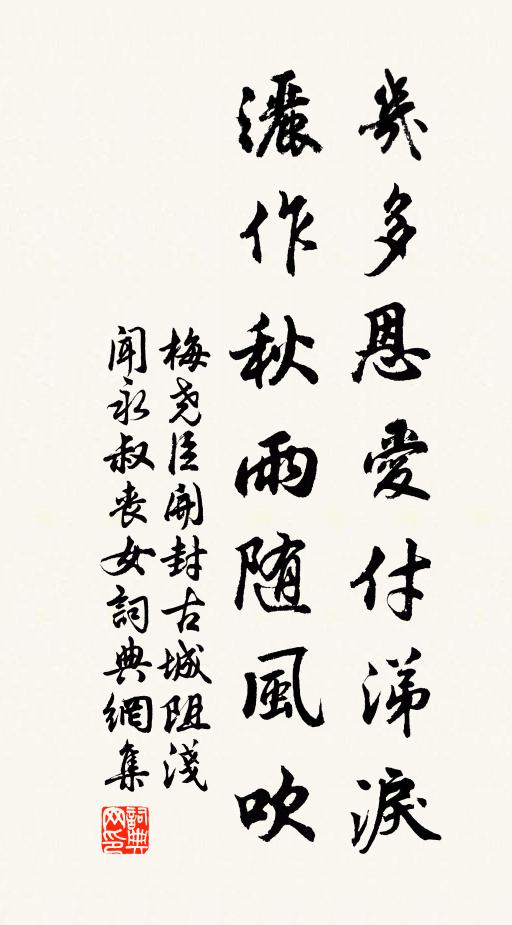 幾多恩愛付涕淚
灑作秋雨随風吹
梅堯臣開封古城阻淺
聞永叔喪女詞典網集
詞典网印